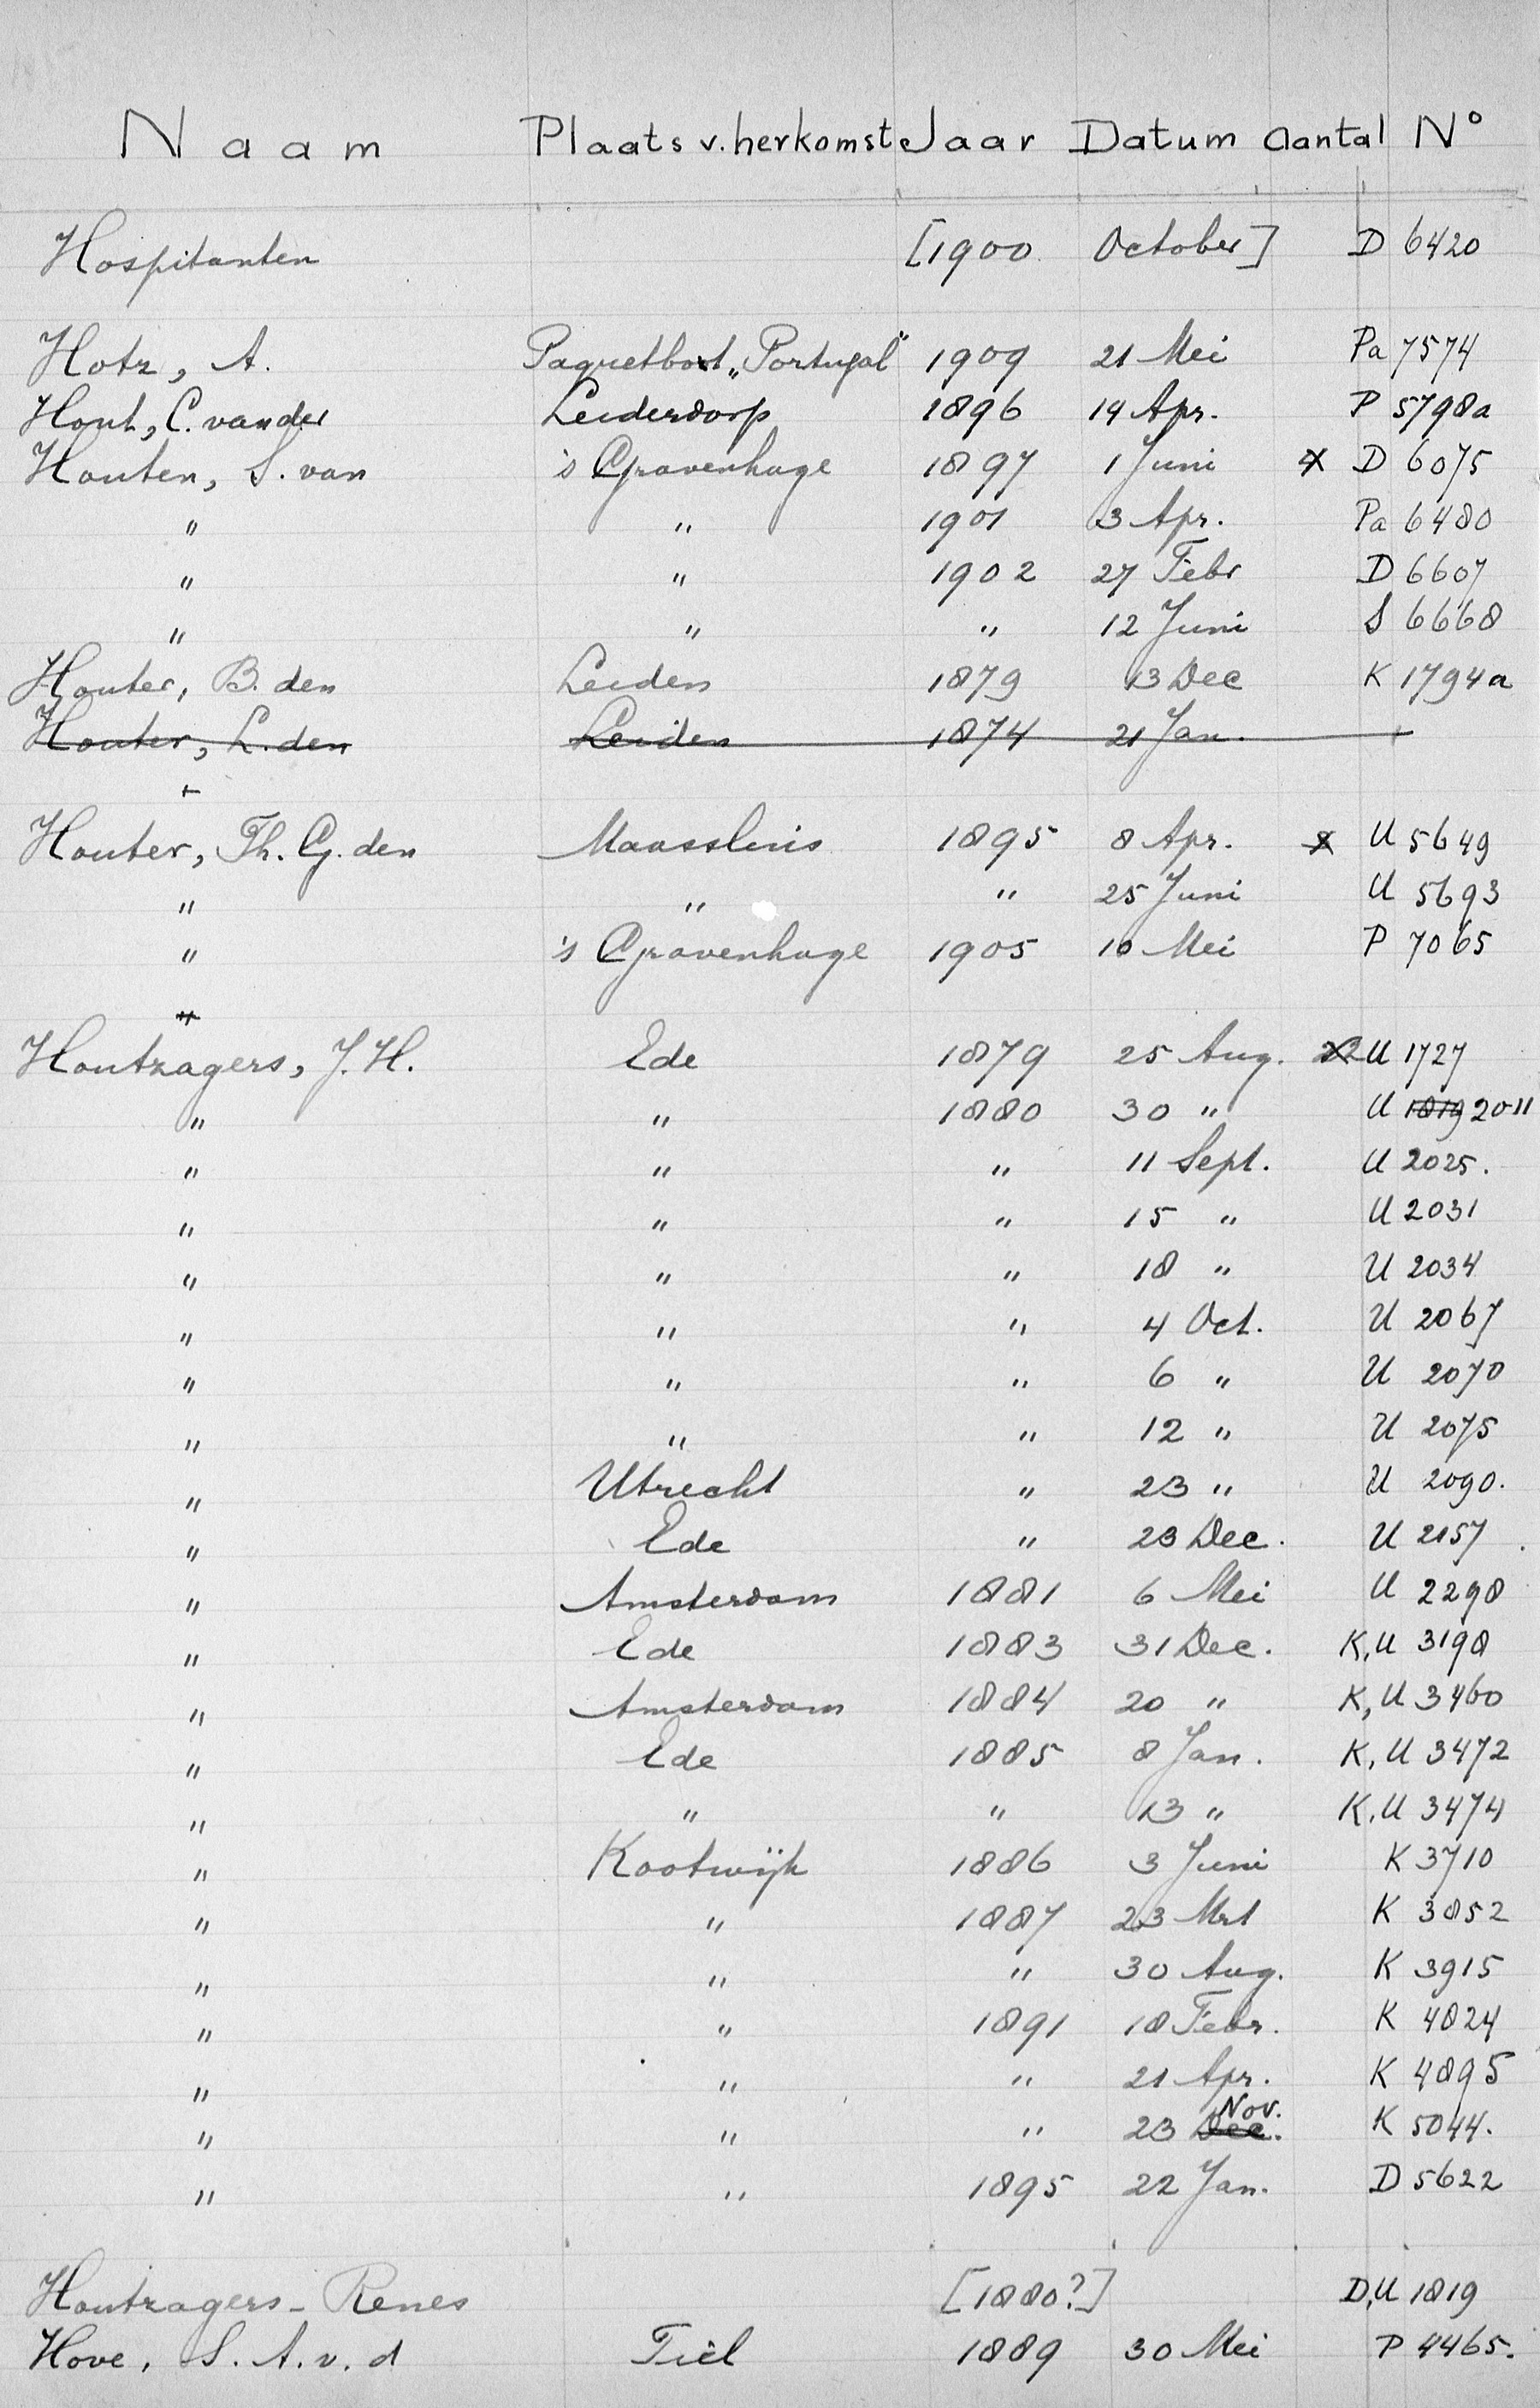 Naam Plaats v. herkomst Jaar Datum Aantal No
Hospitanten [1900 October] D 6420
Hotz, A. Paquetboot „Portugal" 1909 21 Mei Pa 7574
Hout, C. van der Leiderdorp 1896 14 Apr. P 5798a
Houten, S. van 's Gravenhage 1897 1 Juni D 6075
" " 1901 3 Apr. Pa 6480
" " 1902 27 Febr D 6607
" " " 12 Juni S 6668
Houter, B. den Leiden 1879 13 Dec K 1794a
Houter, L. den Leiden 1874 21 Jan.
Houter, Th. G. den Maassluis 1895 8 Apr. U 5649
" " " 25 Juni U 5693
" 's Gravenhage 1905 10 Mei P 7065
"
Houtzagers, J. H. Ede 1879 25 Aug. 22 U 1727
" " 1880 30 " U 1819 2011
" " " 11 Sept. U 2025.
" " " 15 " U 2031
" " " 18 " U 2034
" " " 4 Oct. U 2067
" " " 6 " U 2070
" " " 12 " U 2075
" Utrecht " 23 " U 2090.
" Ede " 23 Dec. U 2157
" Amsterdam 1881 6 Mei U 2298
" Ede 1883 31 Dec. K, U 3198
" Amsterdam 1884 20 " K, U 3460
" Ede 1885 8 Jan. K, U 3472
" " " 13 " K, U 3474
" Kootwijk 1886 3 Juni K 3710
" " 1887 23 Mrt K 3852
" " " 30 Aug. K 3915
" " 1891 18 Febr. K 4824
" " " 21 Apr. K 4895
" " " 23 Dec. Nov. K 5044.
" " 1895 22 Jan. D 5622
Houtzagers-Renes [1880?] D, U 1819
Hove, S. A. v. d Tiel 1889 30 Mei P 4465.